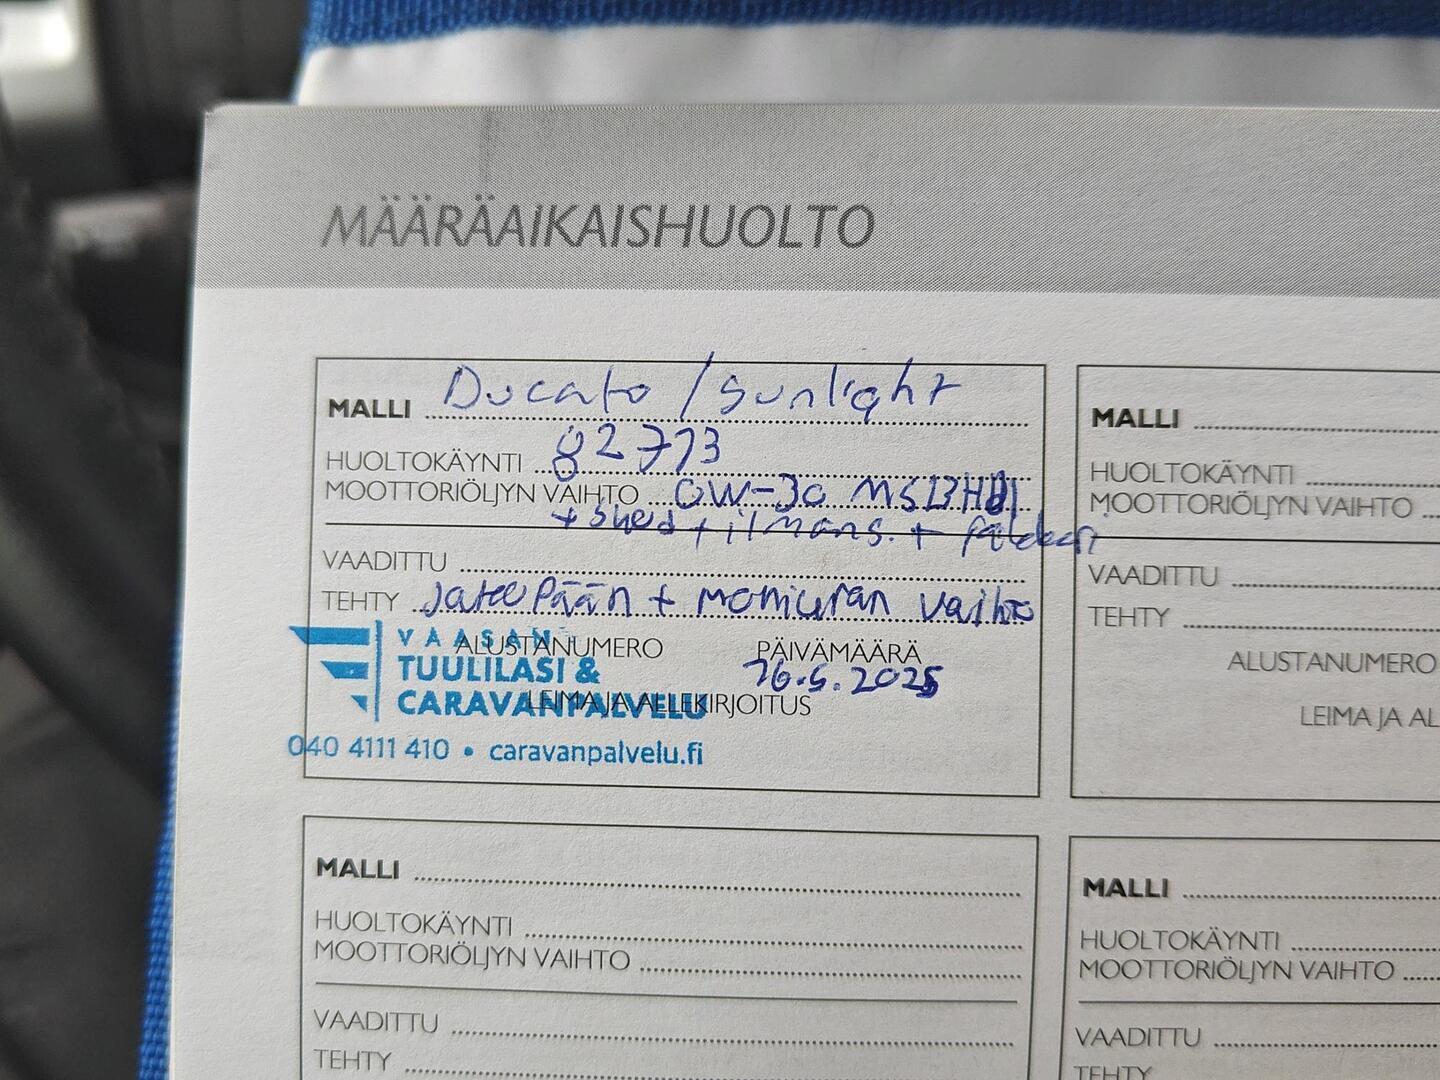 MÄÄRÄAIKAISHUOLTO
MALLI Ducato / Sunlight
HUOLTOKÄYNTI 82773
MOOTTORIÖLJYN VAIHTO 0W-30 MS13HD
+ + ilmans. +
VAADITTU
TEHTY Jakopään + moniuran vaihto
ALUSTANUMERO PÄIVÄMÄÄRÄ
26.5.2025
LEIMA JA ALLEKIRJOITUS
VAASAN
TUULILASI &
CARAVANPALVELU
040 4111 410 • caravanpalvelu.fi
MALLI
HUOLTOKÄYNTI
MOOTTORIÖLJYN VAIHTO
VAADITTU
TEHTY
ALUSTANUMERO
LEIMA JA AL
MALLI
HUOLTOKÄYNTI
MOOTTORIÖLJYN VAIHTO
VAADITTU
TEHTY
MALLI
HUOLTOKÄYNTI
MOOTTORIÖLJYN VAIHTO
VAADITTU
TEHTY